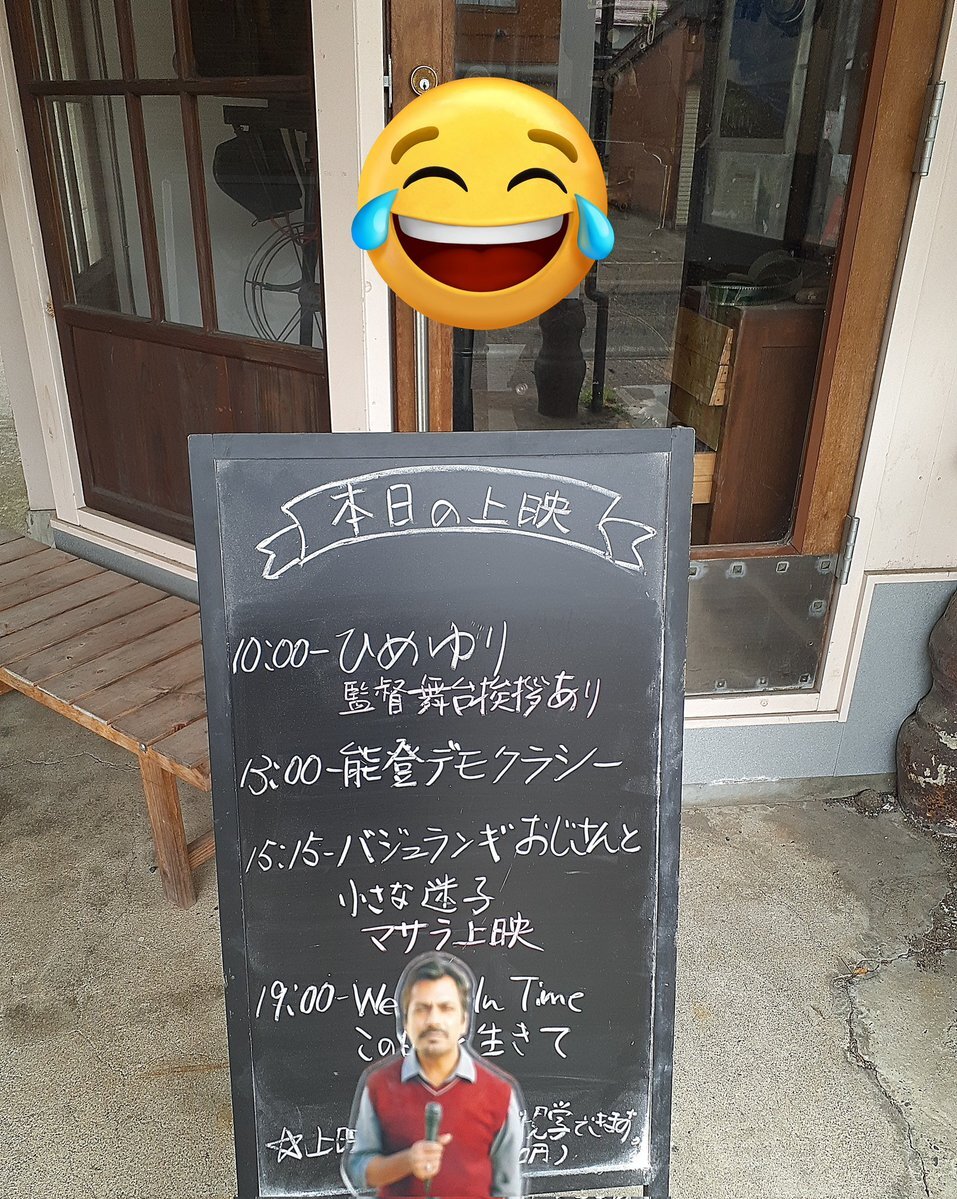 本日の上映
10:00-ひめゆり
監督舞台挨拶あり
13:00-能登デモクラシー
15:15-バジュランギおじさんと
小さな迷子
マサラ上映
19:00-We In Time
この 生きて
☆上映 見学できます